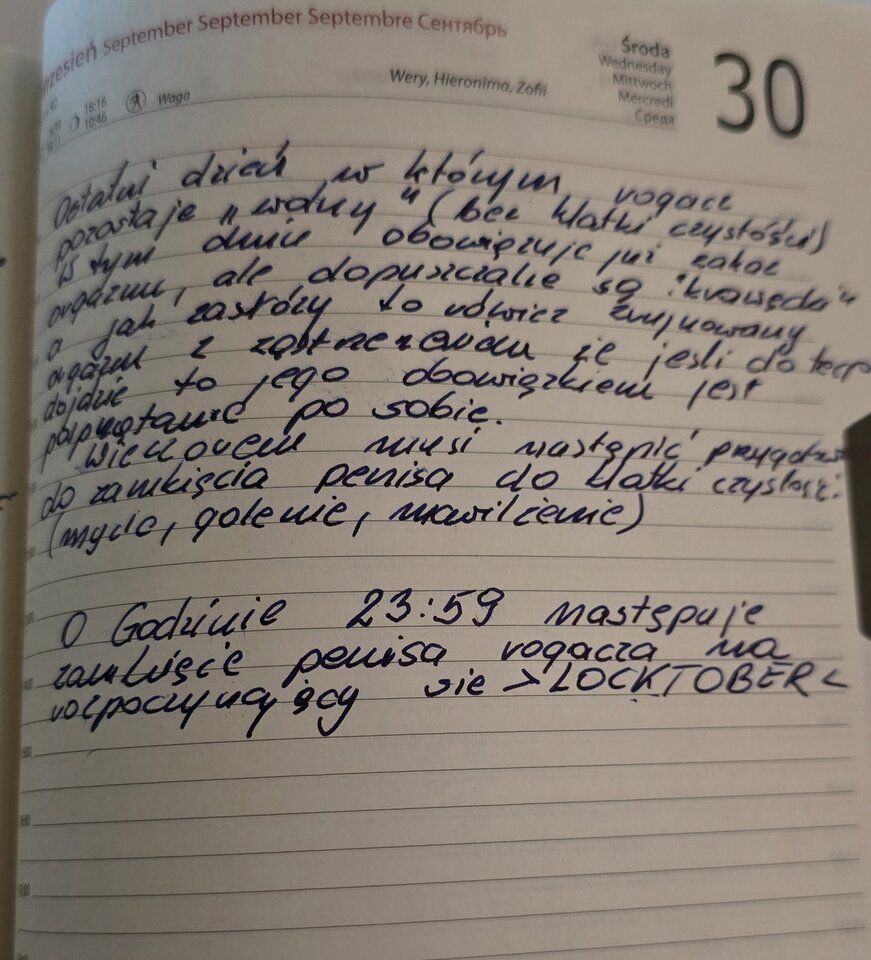 rzesień September September Septembre Сентябрь
Środa
Wednesday
Mittwoch
Mercredi
Среда
30
Wery, Hieronima, Zofii
18:16
10:46
Waga
Ostatni dzień w którym rogacz
pozostaje „wolny" (bez klatki czystości)
W tym dniu obowiązuje już zakaz
orgazmu, ale dopuszczalne są "krawędki"
a jak zasłuży to również zrujnowany
orgazm z zastrzeżeniem że jeśli do tego
dojdzie to jego obowiązkiem jest
posprzątanie po sobie.
Wieczorem musi nastąpić
do zamknięcia penisa do klatki czystości.
(mycie, golenie, nawilżenie)
O Godzinie 23:59 następuje
zamknięcie penisa rogacza na
rozpoczynający się >LOCKTOBER<